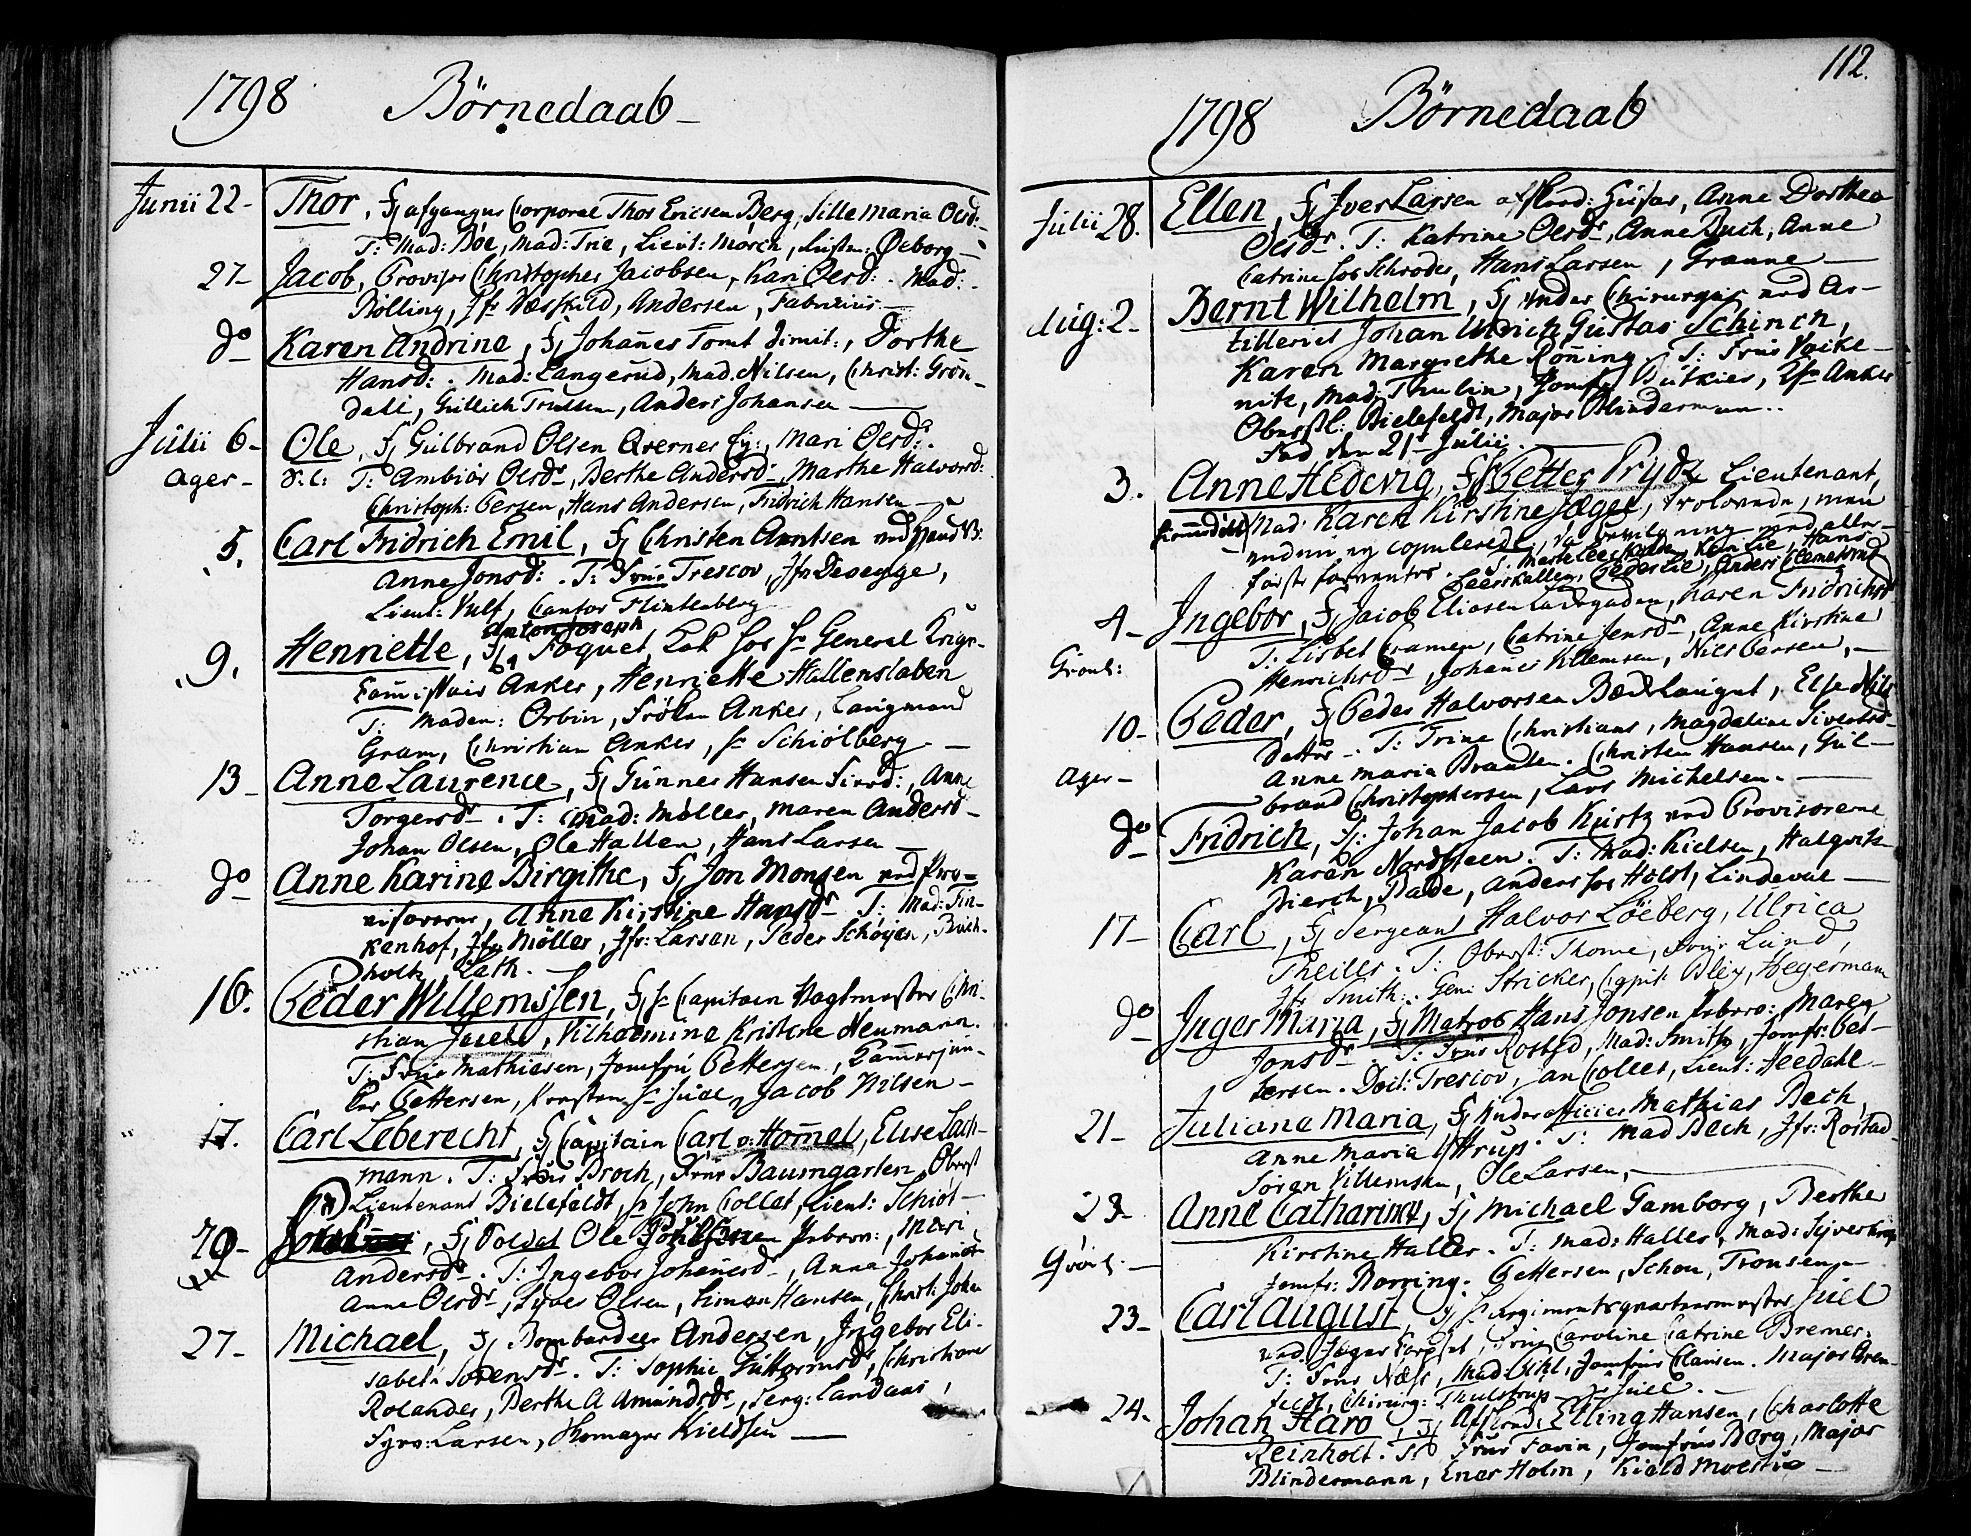 1798 Börnedaab
Junii 22 - Thor, Fj afgangne Corporal Thor Ericsen Berg, Sille Maria Olsd:
T: Mad: Böe, Mad: Trie, Lieut: Mörch,
27 - Jacob, Provisor Christopher Jacobsen, Kari Olsd: . Mad:
Bölling, Jfr Væskild, Andersen, Fabricius
do Karen Andrine, Fj Johanes Tomt dimit:, Dorthe
Hansd: . Mad: Langerud, Mad. Nilsen, Christ: Grön-
dali, Gullich Trulsen, Anders Johansen
Julii 6 - Ole, Fj Gulbrand Olsen Qvernes Ej:, Mari Olsd:
Ager - T: Ambiör Olsdr, Berthe Andersd, Marthe Halvorsd:
Christoph: Persen, Hans Andersen, Fridrich Hansen
5. Carl Fridrich Emil, Fj Christen Arntsen ved
Anne Jonsd: . T: Frue Trescov, Jfr Devegge,
Lieut: Vulf, Cantor Flintenberg
Anton Joseph
9. Henriette, Fj Foquet, Kok hos Hr General Krigs-
Anker, Henriette Hallenslaben
T: Madem: Orbin, Fröken Anker, Laugmand
Gram, Christian Anker, Hr Schiölberg
13 - Anne Laurence, Fj Gunner Hansen, Anne
Torgersdr . T: Mad: Möller, Maren Andersd -
Johan Olsen, Ole Hallen, Hans Larsen
do Anne Karine Birgithe, Fj Jon Monsen ved Pro-
visorerne, Anne Kirstine Hansdr T: Mad: Fin-
kenhof, Jfr Möller, Jfr: Larsen, Peder Schöyen, Buch-
holtz, Lath.
16. Peder Willemssen, Fj Hr Capitain Vagtmester Chri-
stian Juell, Vilhelmina Kristine Neumann.
T: Frue Mathiesen, Jomfru Pettersen, Kammerjun-
ker Pettersen, Hr Juel, Jacob Nilsen -
17. Carl Leberecht, Fj Capitain Carl v: Hommel, Elise Lach-
mann . T: Frue Broch, Frue Baumgarten, Oberst
Lieutenant Bielefeldt, Hr John Collet, Lieut: Schiöt -
, Fj Soldat Ole, Mari
Andersdr . T: Ingebor Johanesdr, Anna Johanesdr
Anne Olsdr, Syver Olsen, Simon Hansen, Christ: Johan
27 - Michael, Fj Bombardeer Andersen, Ingebor Eli-
sabet Sörensdr . T: Sophie Guttormsdr, Christiane
Rolander, Berthe A Amundsdr, Serg: Landaas,
Syver Larsen, Kieldsen
112.
1798 Börnedaab
Julii 28. Ellen, Fj Iver Larsen, Anne Dorthea
Olsdr . T: Katrine Olsdr, Anne Buch, Anne
Catrine hos Schröder, Hans Larsen, Granne
Aug: 2 - Bernt Wilhelm, Fj Under Chirurgus ved Ar-
tilleriet Johan Ulrich Gustav Schinch,
Karen Margrethe Rönning . T: Frue
Mad Thulin, Jomfr Butkier, Jfr Anker
Oberstl: Bielefeldt, Major Blinderman
Fød den 21 Julii.
3. Anne Hedevig, Fj Petter Prydz Lieutenant,
Mad: Karen Kirstine Jæger, Trolovede, men
endnu ey copulerede, da bevilgning ved aller-
först forventes . Karen Lie, Hans
Leerskallen, Peder Lie, Anders
4 - Ingebor, Fj Jacob Eliasen, Karen Fridrichsd
Grönl: T: Lisbet Cramer, Catrine Jensdr, Anne Kirstine
Henrichsdr, Johanes Klemsen, Nils Persen, -
10 - Peder, Fj Peder Halvorsen Bæch, Else Nils
datter . T: Trine Christians, Magdaline Siversd -
Ager - Anne Maria Braaten . Christen Hansen, Gul-
brand Christophersen, Lars Michelsen .
do Fridrich, Fj: Johan Jacob Kurtz ved Provisorerne
Karen Nordsteen . T: Mad: Kielsen,
Bierch, Balde, Anders hos Holst, Lindeval
17 - Carl, Fj Sergeant Halvor Löeberg, Ulrica
Theills . T: Oberst: Thome, Frue Lund,
Jfr Smith: . Gen: Stricker, Capit: Blix, Hegerman
do Inger Maria, Fj Matros Hans Jonsen, Maren
Jonsdr . T: Frue Rosted, Mad: Smith, Jomfr: Pet-
tersen . Doct: Trescov, Jan Collet, Lieut: Heedahl
21 - Juliane Maria, Fj Underofficier Mathias Bech,
Anne Maria Ustrup . T: Mad Bech, Jfr: Rostad
Sören Villemsen, Ole Larsen, -
23 - Anne Catharina, Fj Michael Gamborg, Berthe
Kirstine Haller . T: Mad: Haller, Mad: Syvertsen
Grönl: - Jomfr: Borring . Pettersen, Schou, Tronsen
23 - Carl August, Fj Hr Regimentsqvarteermester Juel
ved Jæger Corpset, Frue Caroline Catrine Bremer:
T: Frue Næss, Mad: Uhl, Jomfrue Clausen . Major Bren-
feldt, Chirurg: Thulstrup Hr Juel
24 - Johan Haro, Fj Elling Hansen, Charlotte
Reinholt . T: Frue Favin, Jomfrue Berg, Major
Blindermann, Ener Holm, Kield